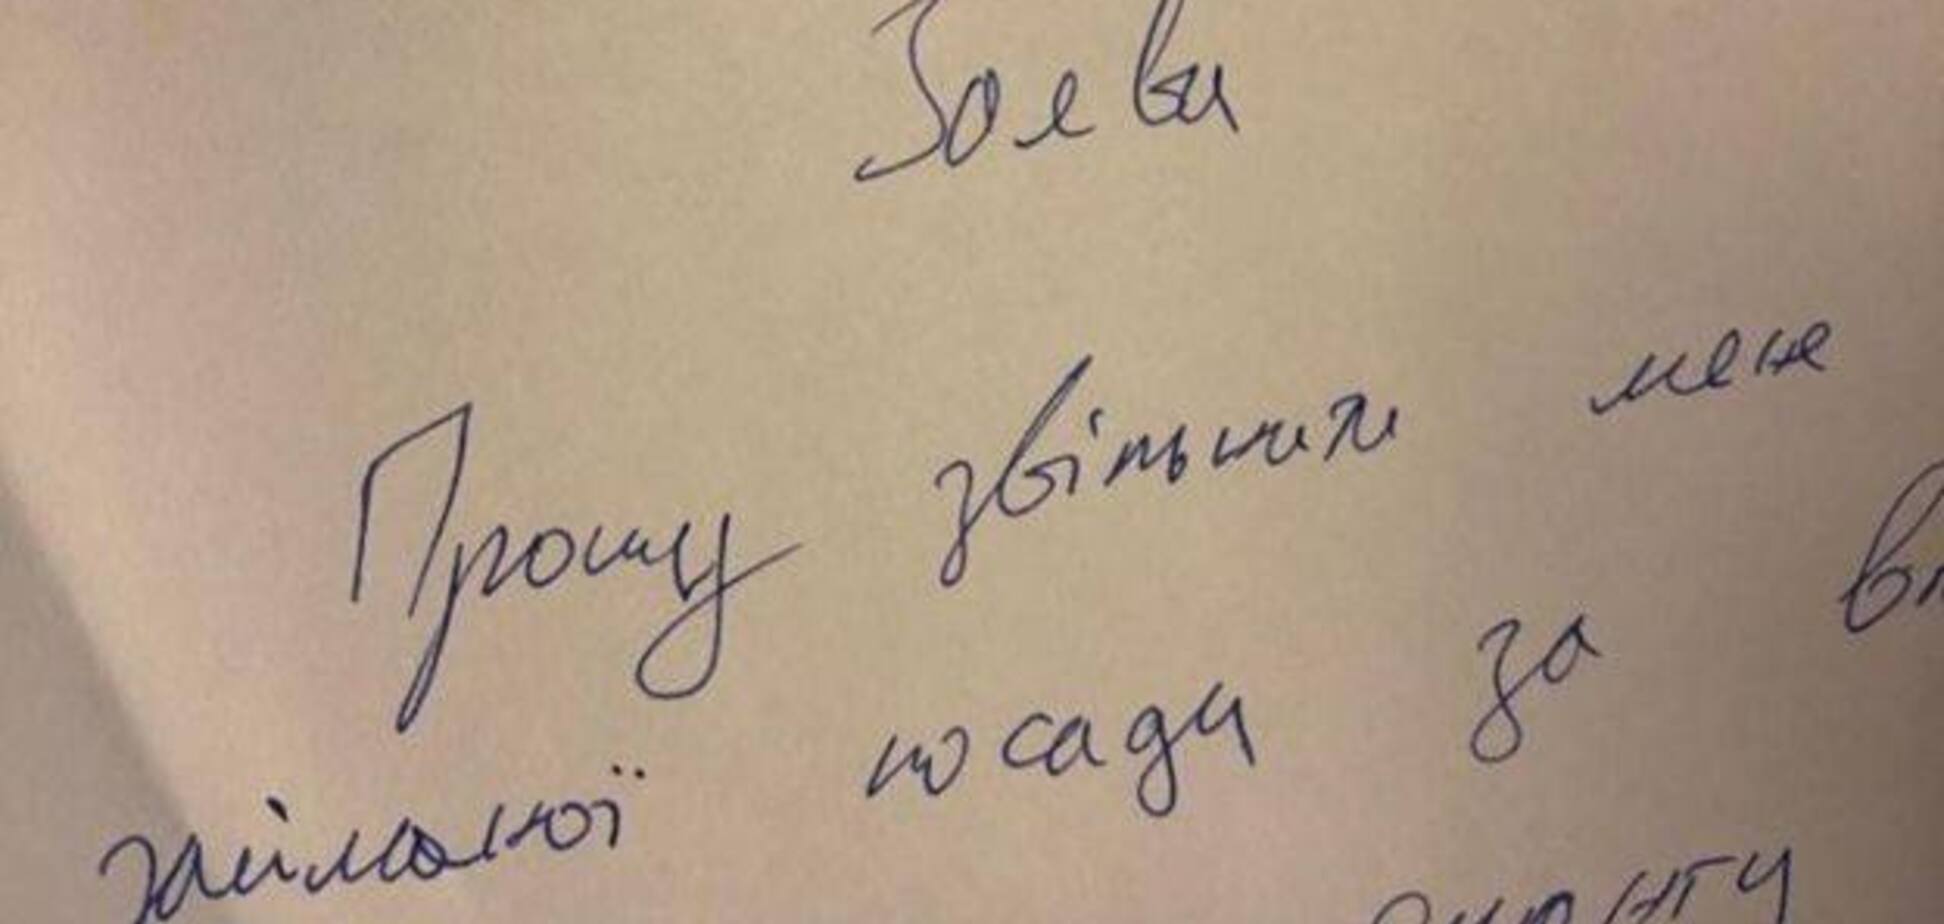 Заява
Прошу звільнити мене
займаної посади за